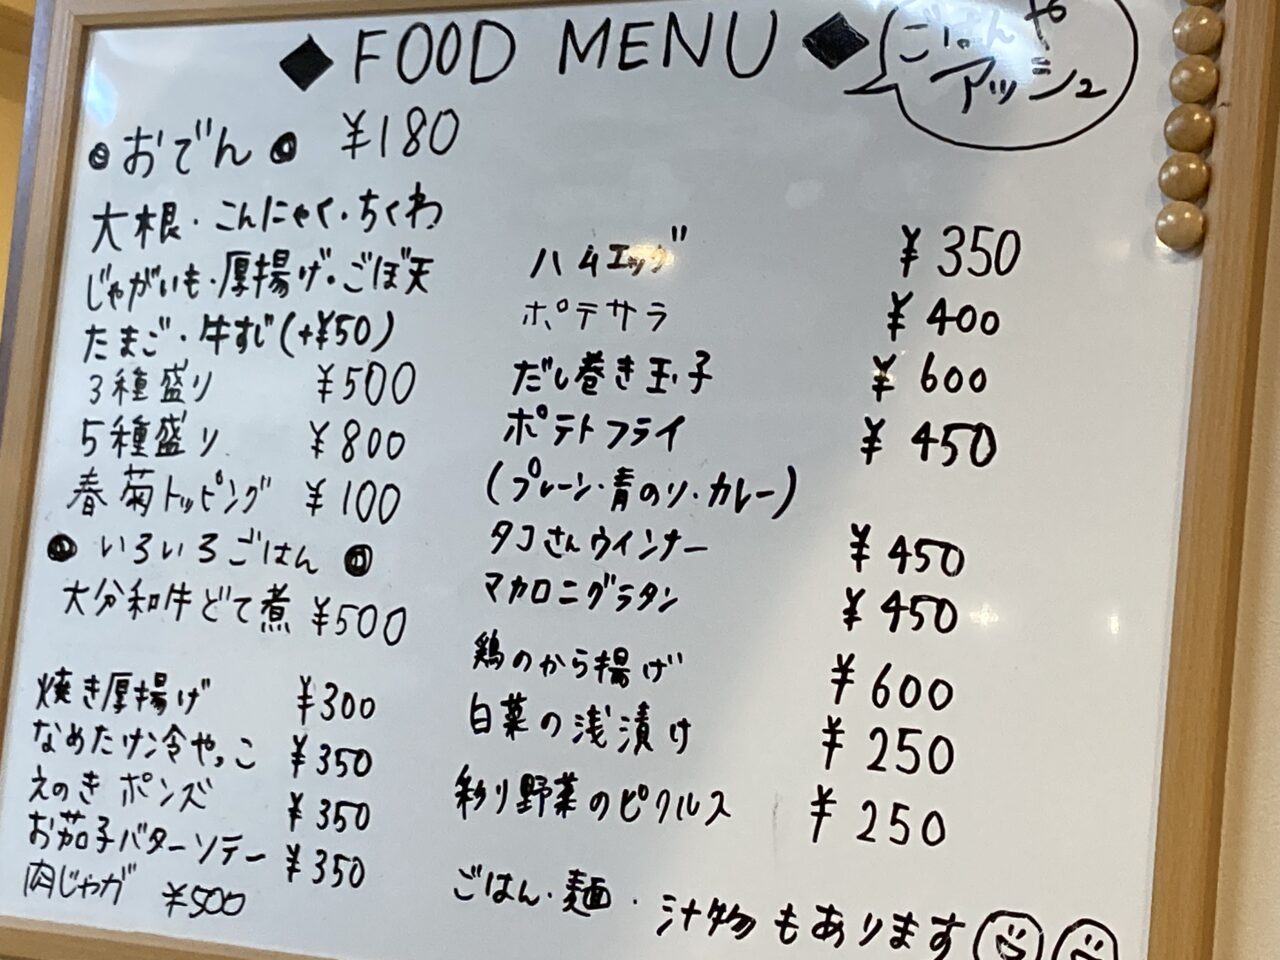 ◆FOOD MENU◆
ごはんや
アッシュ
おでん ¥180
大根・こんにゃく・ちくわ
じゃがいも・厚揚げ・ごぼ天
たまご・牛すじ(+¥50)
3種盛り ¥500
5種盛り ¥800
春菊トッピング ¥100
いろいろごはん
大分和牛どて煮 ¥500
焼き厚揚げ ¥300
なめたけ冷やっこ ¥350
えのきポンズ ¥350
お茄子バターソテー ¥350
肉じゃが ¥500
ハムエッグ ¥350
ポテサラ ¥400
だし巻き玉子 ¥600
ポテトフライ ¥450
(プレーン・青のり・カレー)
タコさんウインナー ¥450
マカロニグラタン ¥450
鶏のから揚げ ¥600
白菜の浅漬け ¥250
彩り野菜のピクルス ¥250
ごはん・麺・汁物もあります